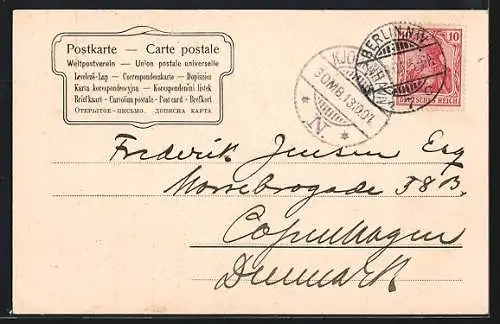 Postkarte — Carte postale
Weltpostverein — Union postale universelle
Levelező-Lap — Correspondenzkarte — Dopisnice
Karta korespondencyjna — Korespondenční listek
Briefkaart - Cartolina postale - Post card - Brefkort
Открытое-письмо. дописна карта.
BERLIN N.W.
10
DEUTSCHES REICH
KJØBENHAVN
N.
Frederik Jensen Esq
58 B.
Copenhagen
Denmark